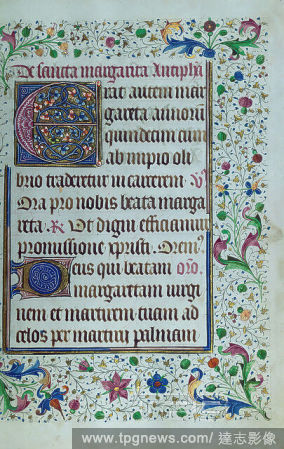 De sancta margarita Antipha
Erat autem mar
gareta annorum
quindecim cum
ab impio oli
brio traderetur in carcerem. V
Ora pro nobis beata marga
reta. R Ut digni efficiamur
promissione christi. Orem
Deus qui beatam oro.
margaretam virgi
nem et martirem tuam ad
celos per martirii palmam
www.tpgnews.com/ 達志影像